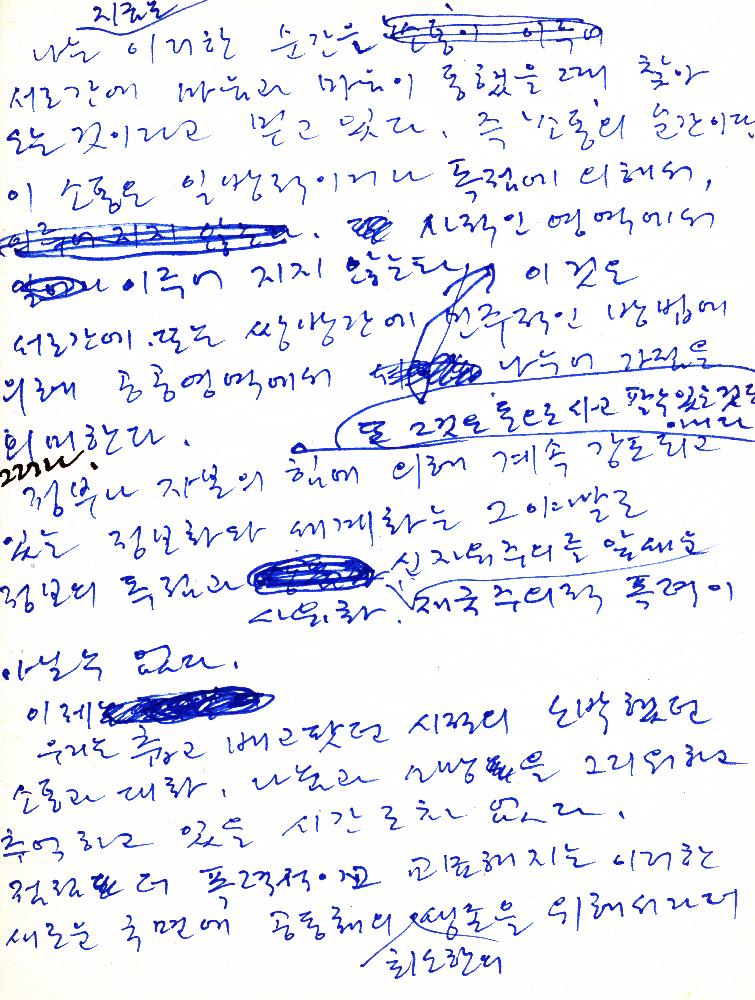 지금은
나는 이러한 순간을 소통이 이루어
서로간에 마음과 마음이 통했을 때 찾아
오는 것이라고 믿고 있다. 즉 '소통'의 순간이다
이 소통은 일방적이거나 독점에 의해서,
이루어 지지 않는다. 사적인 영역에서
이루어 지지 않는다 이것은
서로간에 또는 쌍방간에 민주적인 방법에
의해 공공영역에서 나누어 가짐을
또 그것은 돈으로 사고 팔수있는것도
아니다
의미한다.
그러나,
정부나 자본의 힘에 의해 계속 강조되고
있는 정보화와 세계화는 그야말로
정보의 독점과 신자유주의를 앞세운
사유화, 제국주의적 폭력이
아닐수 없다.
이제는
우리는 춥고 배고팠던 시절의 소박했던
소통과 대화, 나눔과 을 그리워하고
추억하고 있을 시간조차 없다.
점점 더 폭력적이고 교묘해지는 이러한
새로운 국면에 공동체의 생존을 위해서라도
최소한의